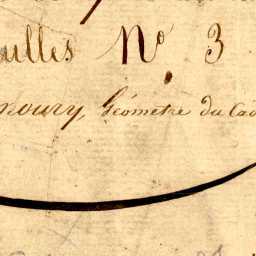 uilles Nº 3
noury Géomètre du Cad